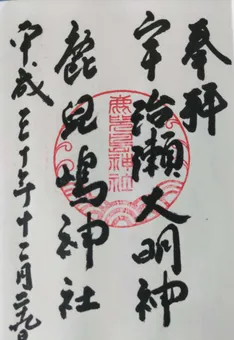 奉拝
宇治瀬大明神
鹿児嶋神社
平成三十年十二月二九日
鹿兒島神社